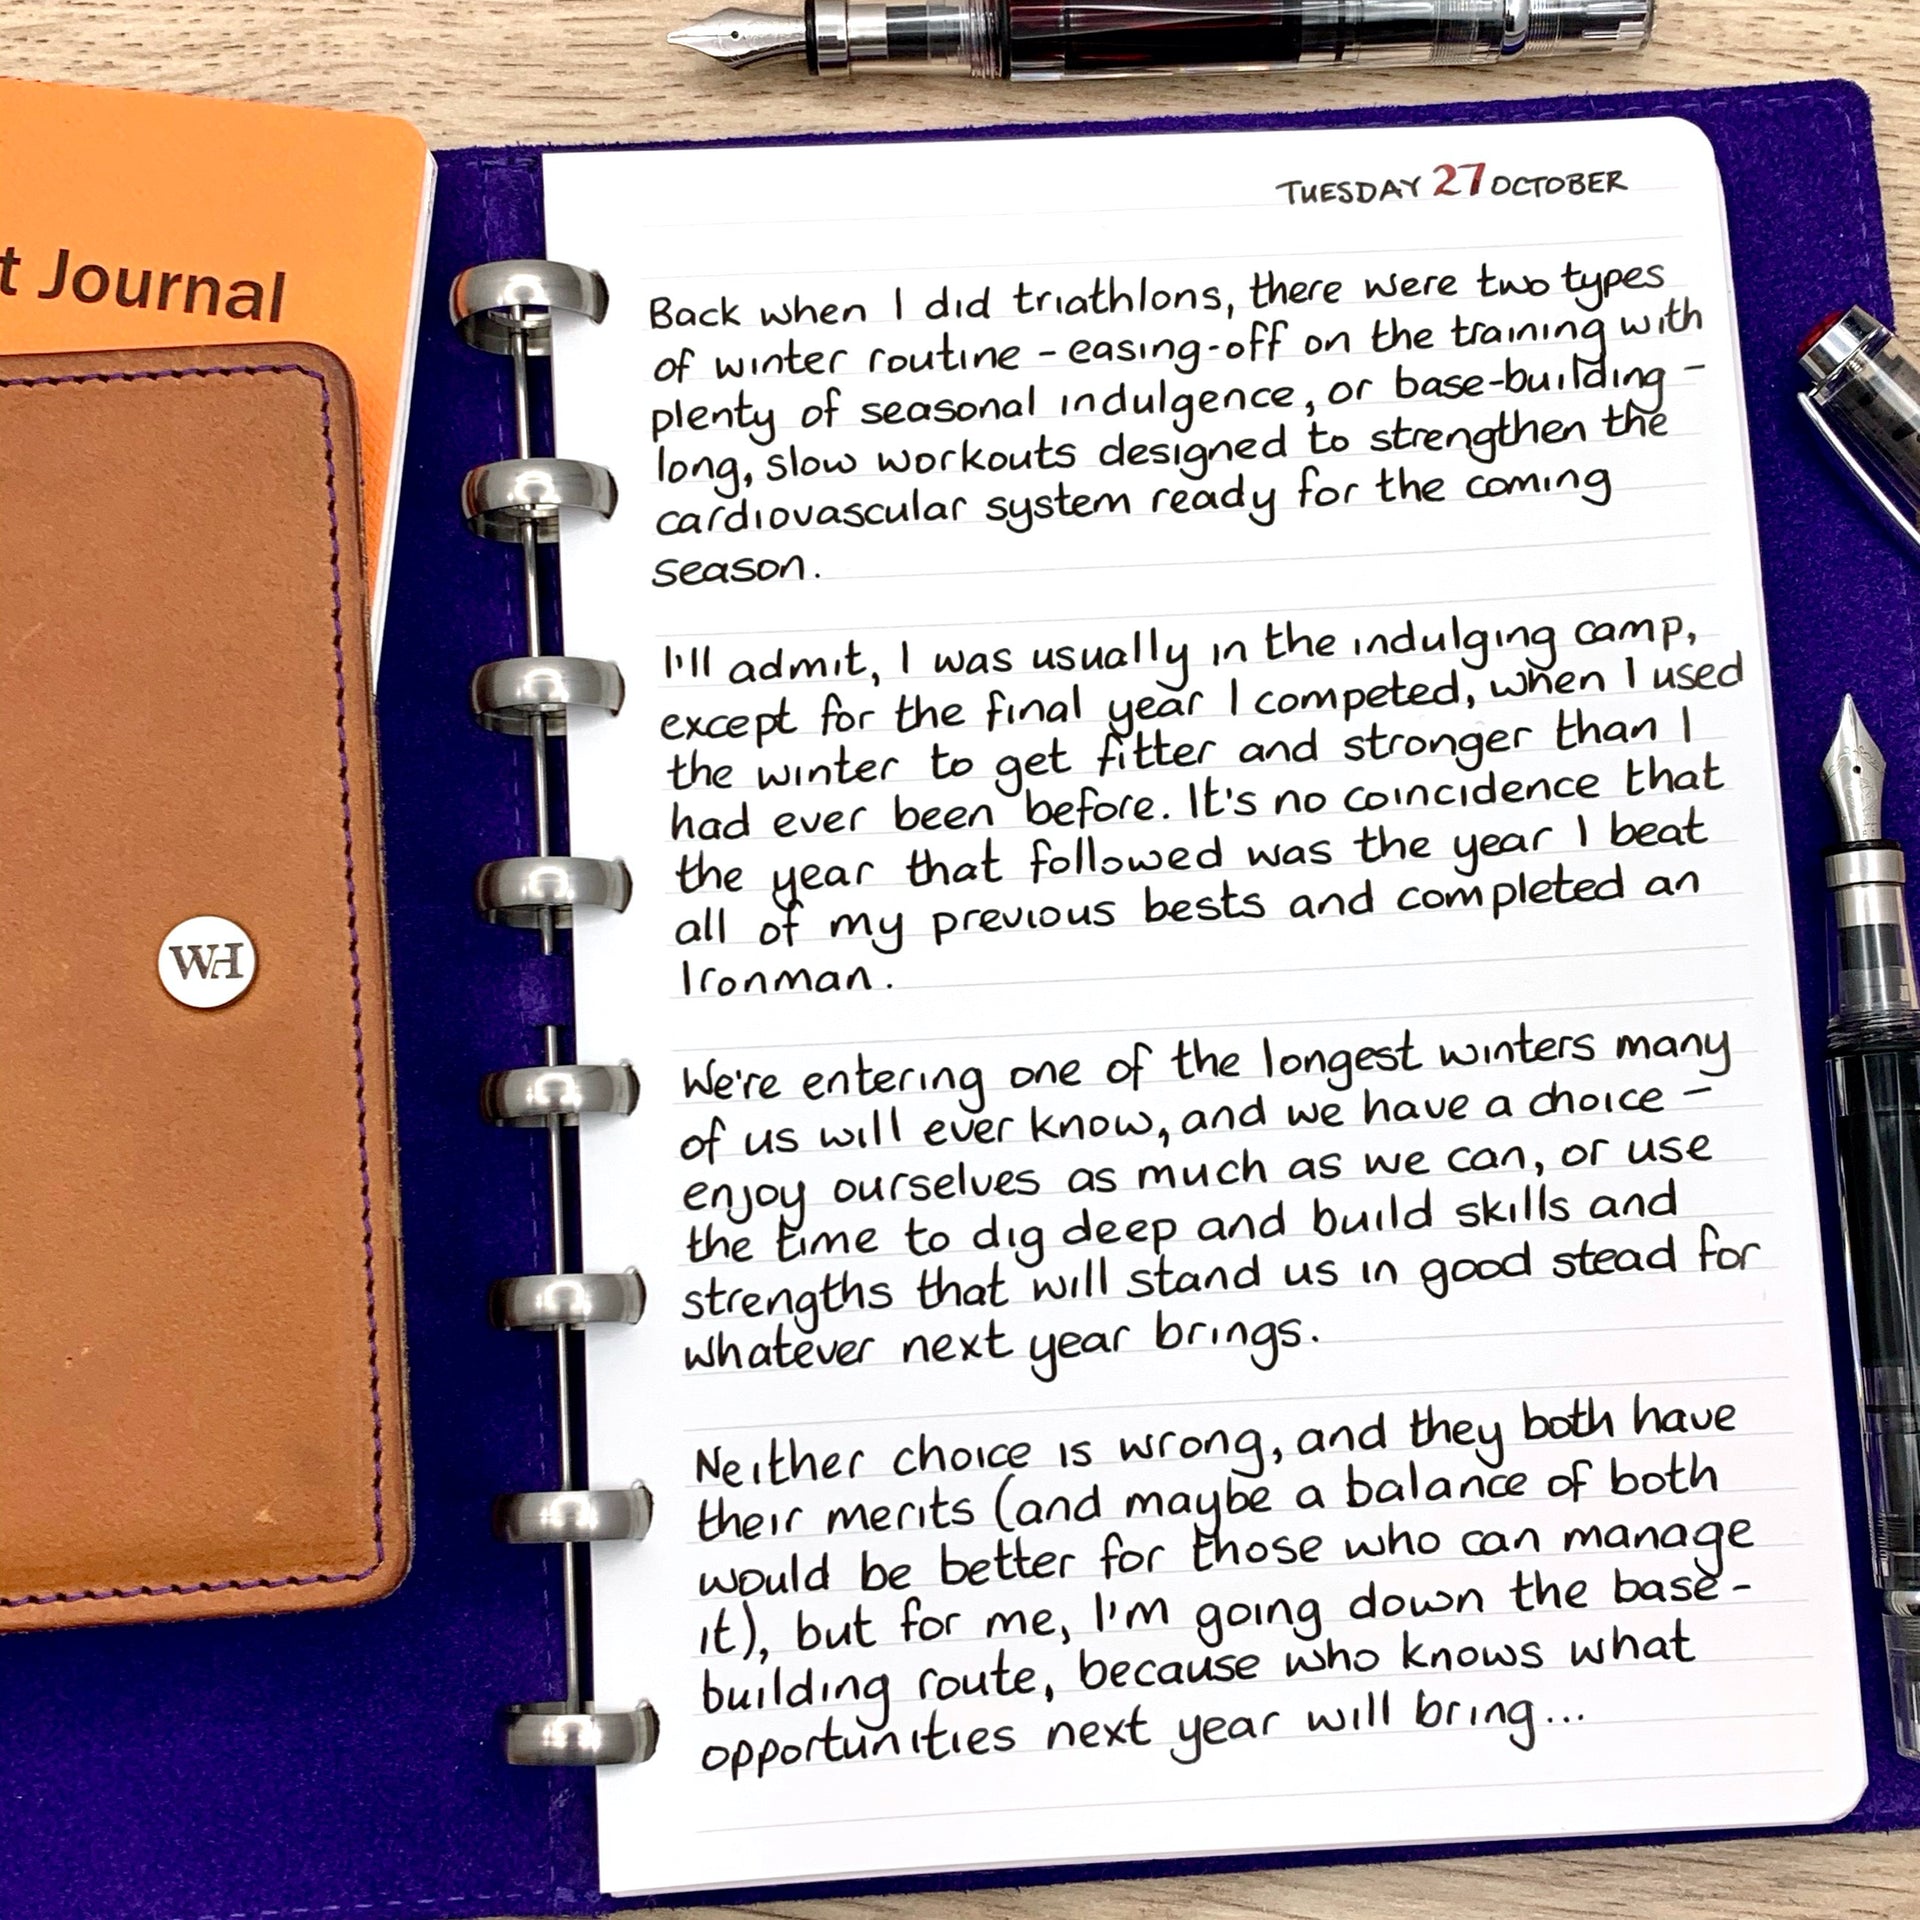 t Journal
WH
TUESDAY 27 OCTOBER
Back when I did triathlons, there were two types
of winter routine - easing-off on the training with
plenty of seasonal indulgence, or base-building -
long, slow workouts designed to strengthen the
cardiovascular system ready for the coming
season.
I'll admit, I was usually in the indulging camp,
except for the final year I competed, when I used
the winter to get fitter and stronger than I
had ever been before. It's no coincidence that
the year that followed was the year I beat
all of my previous bests and completed an
Ironman.
We're entering one of the longest winters many
of us will ever know, and we have a choice -
enjoy ourselves as much as we can, or use
the time to dig deep and build skills and
strengths that will stand us in good stead for
whatever next year brings.
Neither choice is wrong, and they both have
their merits (and maybe a balance of both
would be better for those who can manage
it), but for me, I'm going down the base-
building route, because who knows what
opportunities next year will bring...